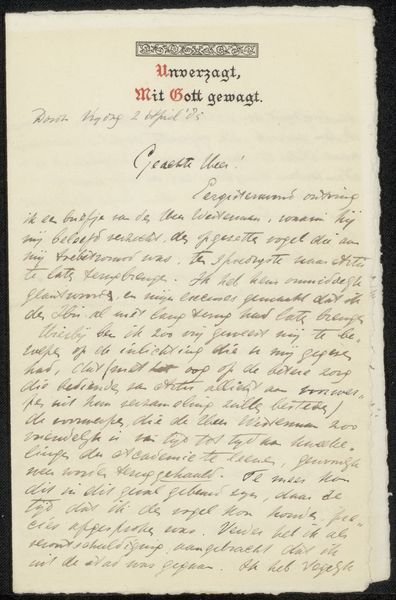 Unverzagt,
Mit Gott gewagt.
Vrijdag 2 April '85
Geachte Heer!
Eergisteravond ontving
ik een briefje van den Heer Westerman, waarin hij
mij beleefd verzocht, den opgezetten vogel die aan
mij toevertrouwd was, ten spoedigste naar Artis
te laten terugbrengen. Ik heb hem onmiddellijk
geantwoord en mijn excuses gemaakt dat ik
den Ibis al niet lang terug had laten brengen
Hierbij ben ik zoo vrij geweest mij te be-
roepen op de inlichting die u mij gegeven
had, dat (met het oog op de betere zorg
die bediende van Artis allicht aan voorwer-
pen uit hun verzameling zullen besteden)
de voorwerpen, die de Heer Westerman zoo
vriendelijk is van tijd tot tijd aan kweeke-
lingen der Academie te leenen, gewoonlijk
weer worden teruggehaald. Te meer kon
dit in dit geval gebeurd zijn, daar de
tijd dat ik den vogel kon houden, pre-
cies afgesproken was. Verder heb ik als
verontschuldiging aangebracht dat ik
uit de stad was gegaan. Ik heb